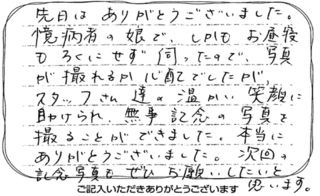 先日は ありがとうございました。
憶病者の娘で、しかも お昼寝
もろくにせず 伺ったので、写真
が 撮れるか 心配でしたが、
スタッフさん達の温かい 笑顔に
助けられ、無事 記念の写真を
撮ることができました。本当に
ありがとうございました。次回の
記念写真も ぜひお願いしたいと
思います。
ご記入いただきありがとうございます